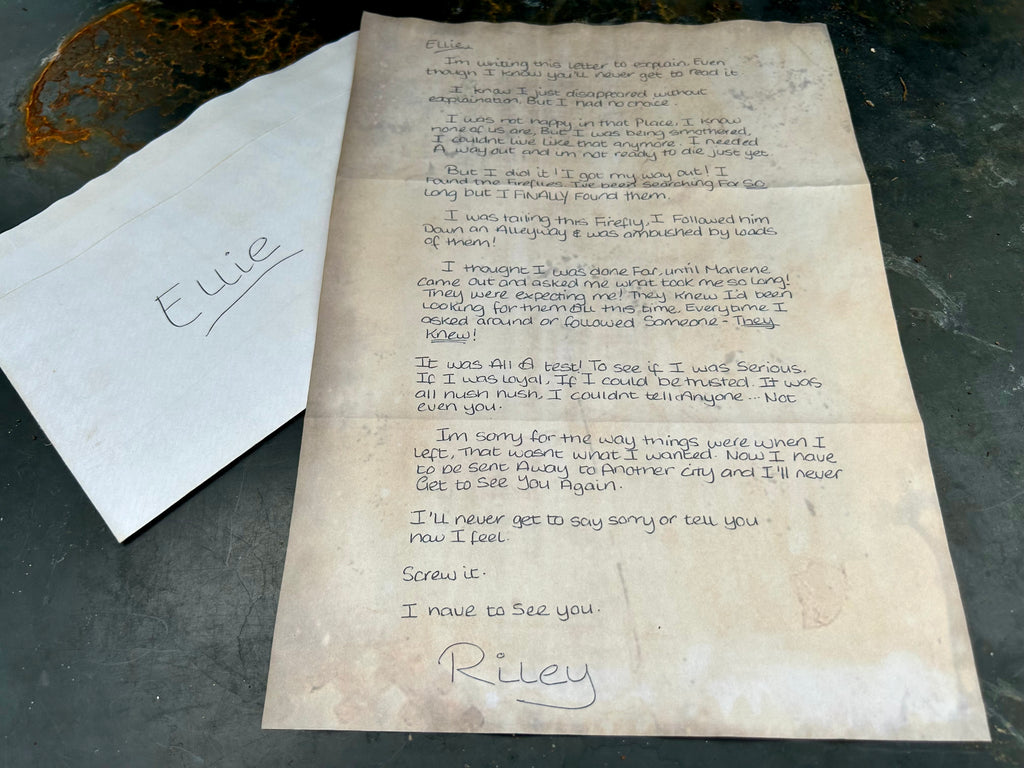 Ellie
Ellie
Im writing this letter to explain, Even
though I know you'll never get to read it
I know I just disappeared without
explaination, But I had no choice.
I was not happy in that Place, I know
none of us are, But I was being smothered,
I couldnt live like that anymore. I needed
A way out and im not ready to die just yet.
But I did it! I got my way out! I
Found the Fireflies. I've been searching For SO
long but I FINALLY Found them.
I was tailing this Firefly, I Followed him
Down an Alleyway & was ambushed by loads
of them!
I thought I was done For, until Marlene
came out and asked me what took me so long!
They were expecting me! They knew I'd been
Looking for them all this time. Everytime I
asked around or followed Someone - They
Knew!
It was All A test! To see if I was Serious.
If I was loyal, If I could be trusted. It was
all hush hush, I couldnt tell Anyone... Not
even you.
Im sorry for the way things were when I
left, That wasnt what I wanted. Now I have
to be sent Away to Another city and I'll never
Get to See You Again.
I'll never get to say sorry or tell you
how I feel.
Screw it.
I have to See you.
Riley